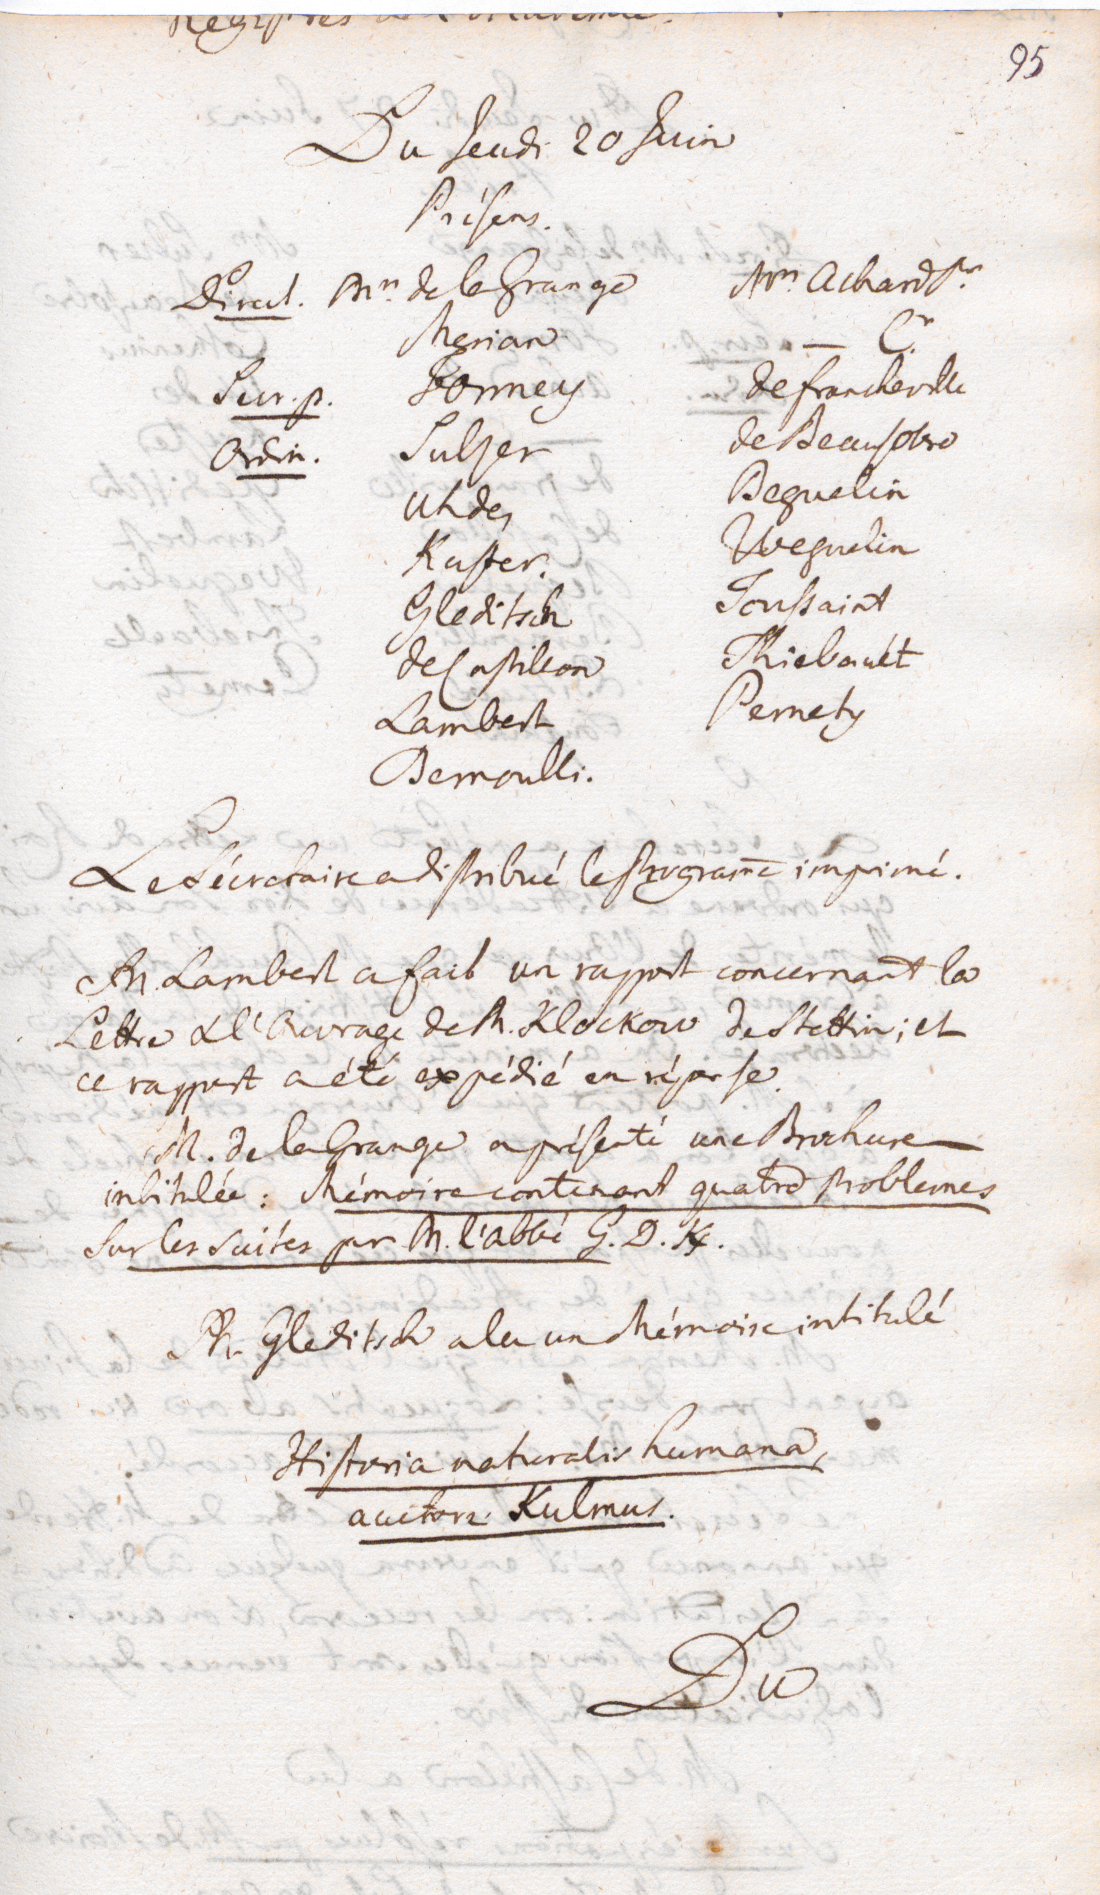 95
Du Jeudi 20 Juin
Présens.
Direct. Mrs. de la Grange
Merian
Secr. p. Formey
Ordin. Sulzer
Uhden
Kuster.
Gleditsch
de Castillon
Lambert
Bernoulli.
Mrs. Achard Pr.
— Cr.
de Francheville
de Beausobre
Beguelin
Weguelin
Toussaint
Thiebault
Pernety
Le Sécretaire a distribué le Programe imprimé.
M. Lambert a fait un rapport concernant la
Lettre & l'Ouvrage de M. Klockow de Stettin; et
ce rapport a été expédié en réponse.
M. de la Grange a présenté une Brochure
intitulée: Mémoire contenant quatre Problemes
sur les suites par M. l'abbé G. D. K.
Mr. Gleditsch a lu un Mémoire intitulé
Historia naturalis humana,
auctore Kulmus.
Du